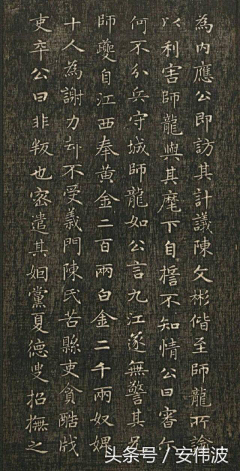 為内應公即訪其計議陳文彬偕至師龍所諭
以利害師龍與其麾下自誓不知情公曰審尔
何不分兵守城師龍如公言九江遂無警其兄
師夔自江西奉黄金二百兩白金二千兩奴婢
十人為謝力却不受義門陳氏苦縣吏貪酷戕
吏卒公曰非叛也宻遣其姻黨夏德叟招撫之
头条号 / 安伟波